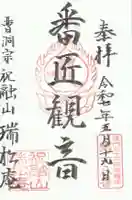 奉拝
令和七年五月十九日
番近観音
曹洞宗 祝融山 瑞松庵